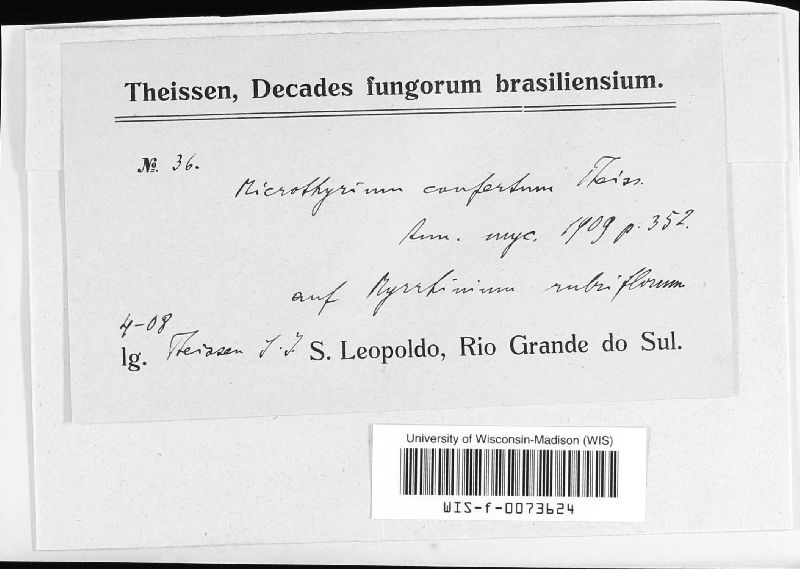 Theissen, Decades fungorum brasiliensium.
№. 36.
Microthyrium confertum Theiss.
Ann. myc. 1909 p. 352.
auf Myrrhinium rubriflorum
4-08
lg. Theissen S. J. S. Leopoldo, Rio Grande do Sul.
University of Wisconsin-Madison (WIS)
WIS-f-0073624